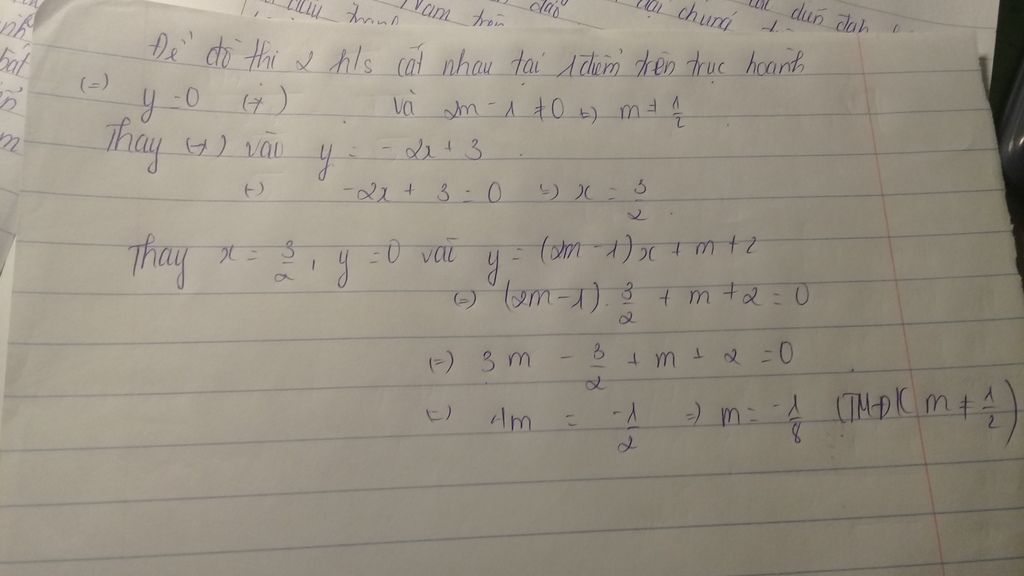 Nam trên
chung
Để đồ thị 2 h/s cắt nhau tại 1 điểm trên trục hoành
(=) y = 0 (*) và 2m - 1 ≠ 0 (=) m ≠ 1/2
Thay (*) vào y = -2x + 3
(=) -2x + 3 = 0 (=) x = 3/2
Thay x = 3/2, y = 0 vào y = (2m - 1)x + m + 2
(=) (2m - 1). 3/2 + m + 2 = 0
(=) 3m - 3/2 + m + 2 = 0
(=) 4m = -1/2 =) m = -1/8 (TMĐK m ≠ 1/2)